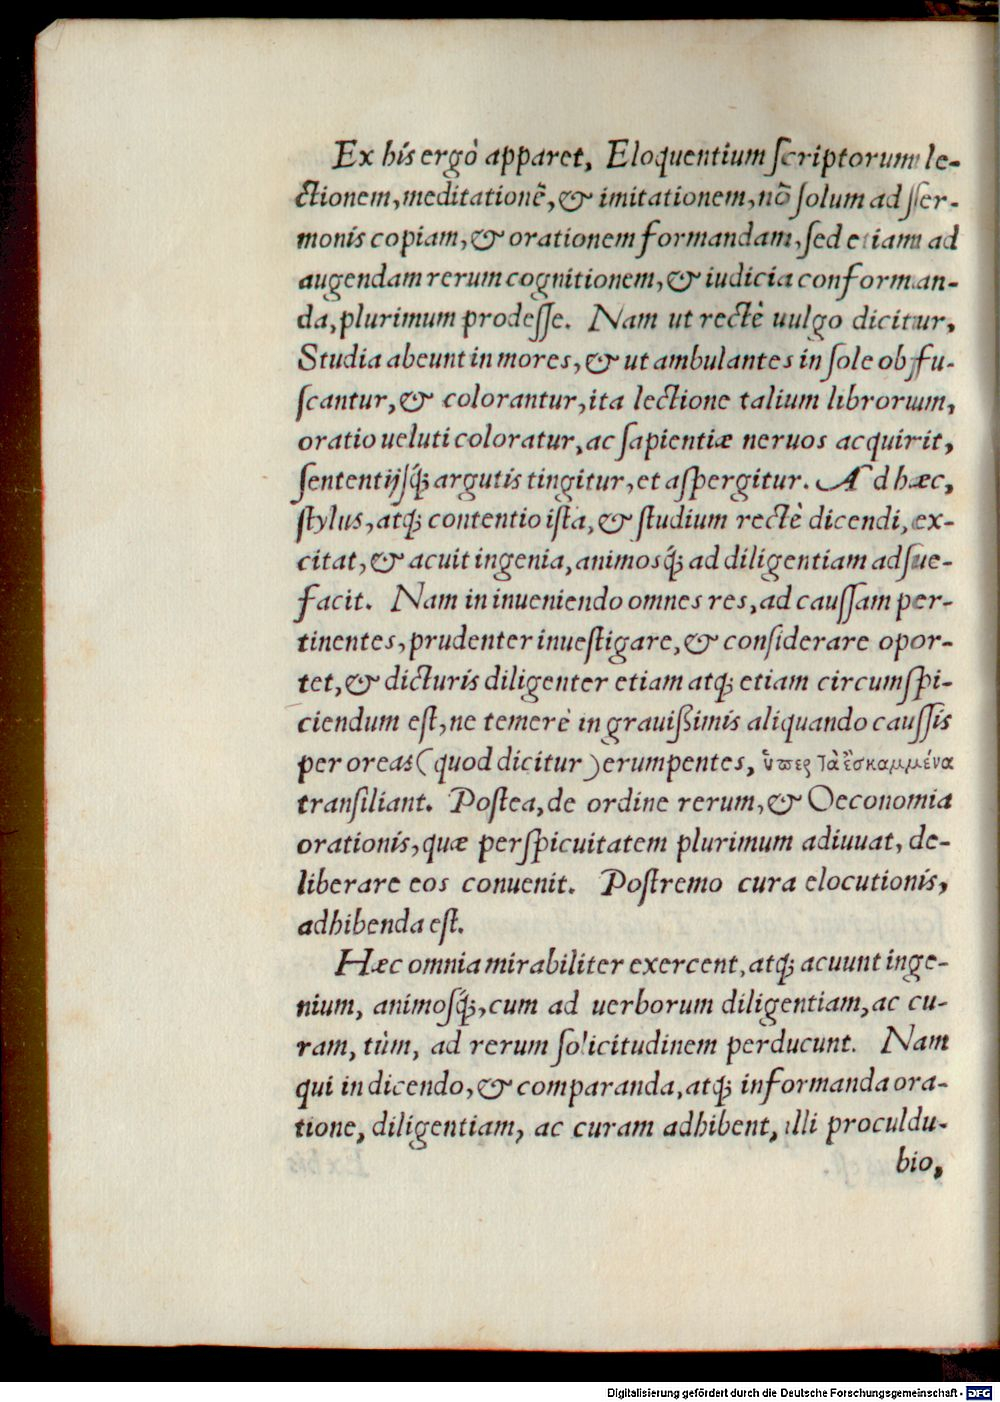 Ex his ergò apparet, Eloquentium ſcriptorum le-
ctionem, meditationē, & imitationem, nō ſolum ad ſer-
monis copiam, & orationem formandam, ſed etiam ad
augendam rerum cognitionem, & iudicia conforman-
da, plurimum prodeſſe. Nam ut rectè uulgo dicitur,
Studia abeunt in mores, & ut ambulantes in ſole obfu-
ſcantur, & colorantur, ita lectione talium librorum,
oratio ueluti coloratur, ac ſapientiæ neruos acquirit,
ſententijſq́ꝫ argutis tingitur, et aſpergitur. Ad hæc,
ſtylus, atqꝫ contentio iſta, & ſtudium rectè dicendi, ex-
citat, & acuit ingenia, animosq́ꝫ ad diligentiam adſue-
facit. Nam in inueniendo omnes res, ad cauſſam per-
tinentes, prudenter inueſtigare, & conſiderare opor-
tet, & dicturis diligenter etiam atqꝫ etiam circumſpi-
ciendum eſt, ne temerè in grauißimis aliquando cauſſis
per oreas (quod dicitur) erumpentes, ὑπερ τὰ ἐσκαμμένα
tranſiliant. Poſtea, de ordine rerum, & Oeconomia
orationis, quæ perſpicuitatem plurimum adiuuat, de-
liberare eos conuenit. Poſtremo cura elocutionis,
adhibenda eſt.
Hæc omnia mirabiliter exercent, atqꝫ acuunt inge-
nium, animoſq́ꝫ, cum ad uerborum diligentiam, ac cu-
ram, tùm, ad rerum ſolicitudinem perducunt. Nam
qui in dicendo, & comparanda, atqꝫ informanda ora-
tione, diligentiam, ac curam adhibent, illi proculdu-
bio,
Digitalisierung gefördert durch die Deutsche Forschungsgemeinschaft - DFG